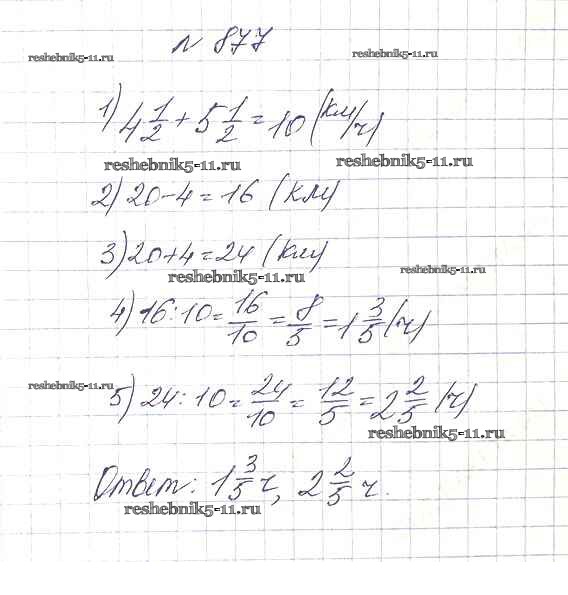 № 877
reshebnik5-11.ru reshebnik5-11.ru
1) 4 1/2 + 5 1/2 = 10 (км/ч)
reshebnik5-11.ru reshebnik5-11.ru
2) 20-4 = 16 (км)
3) 20+4 = 24 (км)
reshebnik5-11.ru reshebnik5-11.ru
4) 16:10 = 16/10 = 8/5 = 1 3/5 (ч)
reshebnik5-11.ru
5) 24:10 = 24/10 = 12/5 = 2 2/5 (ч)
reshebnik5-11.ru
Ответ: 1 3/5 ч, 2 2/5 ч.
reshebnik5-11.ru